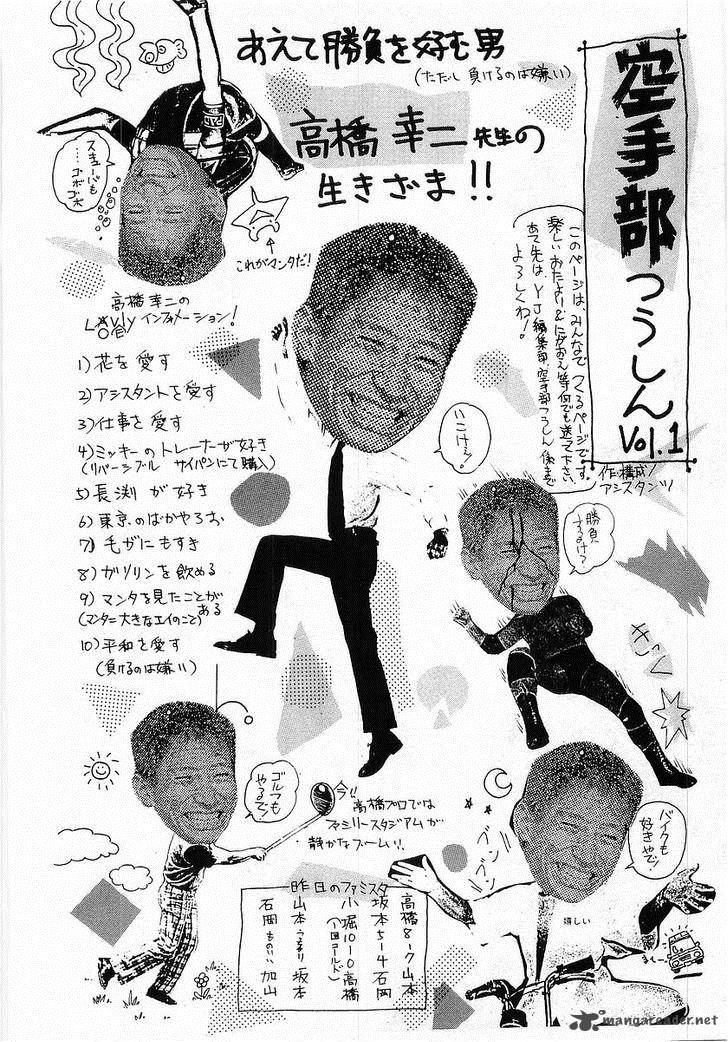 あえて勝負を好む男
(ただし負けるのは嫌い)
高橋幸二先生の
生きざま!!
空手部つうしん Vol.1
このページは、みんなでつくるページです。
楽しいおたよりやにがおえ等何でも送って下さい。
あて先は、YJ編集部・空手部つうしん係まで
よろしくね!
作・構成/
アシスタンツ
スキューバも
…ゴボゴボ
これがマンタだ!
高橋幸二の
インフォメーション!
1)花を愛す
2)アシスタントを愛す
3)仕事を愛す
4)ミッキーのトレーナーが好き
(リバーシブル サイパンにて購入)
5)長渕が好き
6)東京のばかやろお
7)毛ガニもすき
8)ガソリンを飲める
9)マンタを見たことがある
(マンタ=大きなエイのこと)
10)平和を愛す
(負けるのは嫌い)
勝負
するけ?
ゴルフも
やるで!
今!!
高橋プロでは
ファミリースタジアムが
静かなブーム!!
バイクも
好きやで!
ブンブン
嬉しい
昨日のファミスタ
高橋8-7山本
坂本5-4石岡
小堀10-0高橋
(1回コールド)
山本 坂本
石岡 加山
mangareader.net